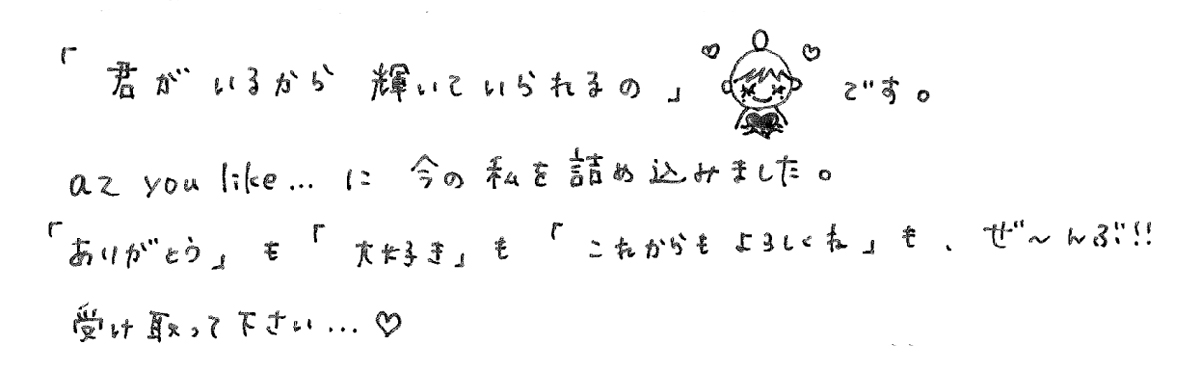 「君がいるから 輝いていられるの」♡♡です。
az you like... に 今の私を詰め込みました。
「ありがとう」も「大好き」も「これからもよろしくね」も、ぜ〜んぶ!!
受け取って下さい...♡